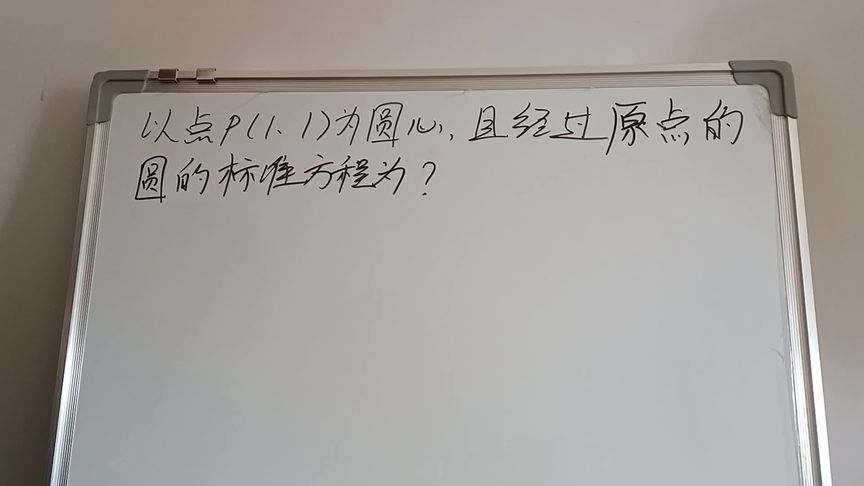 以点P(1、1)为圆心,且经过原点的
圆的标准方程为?